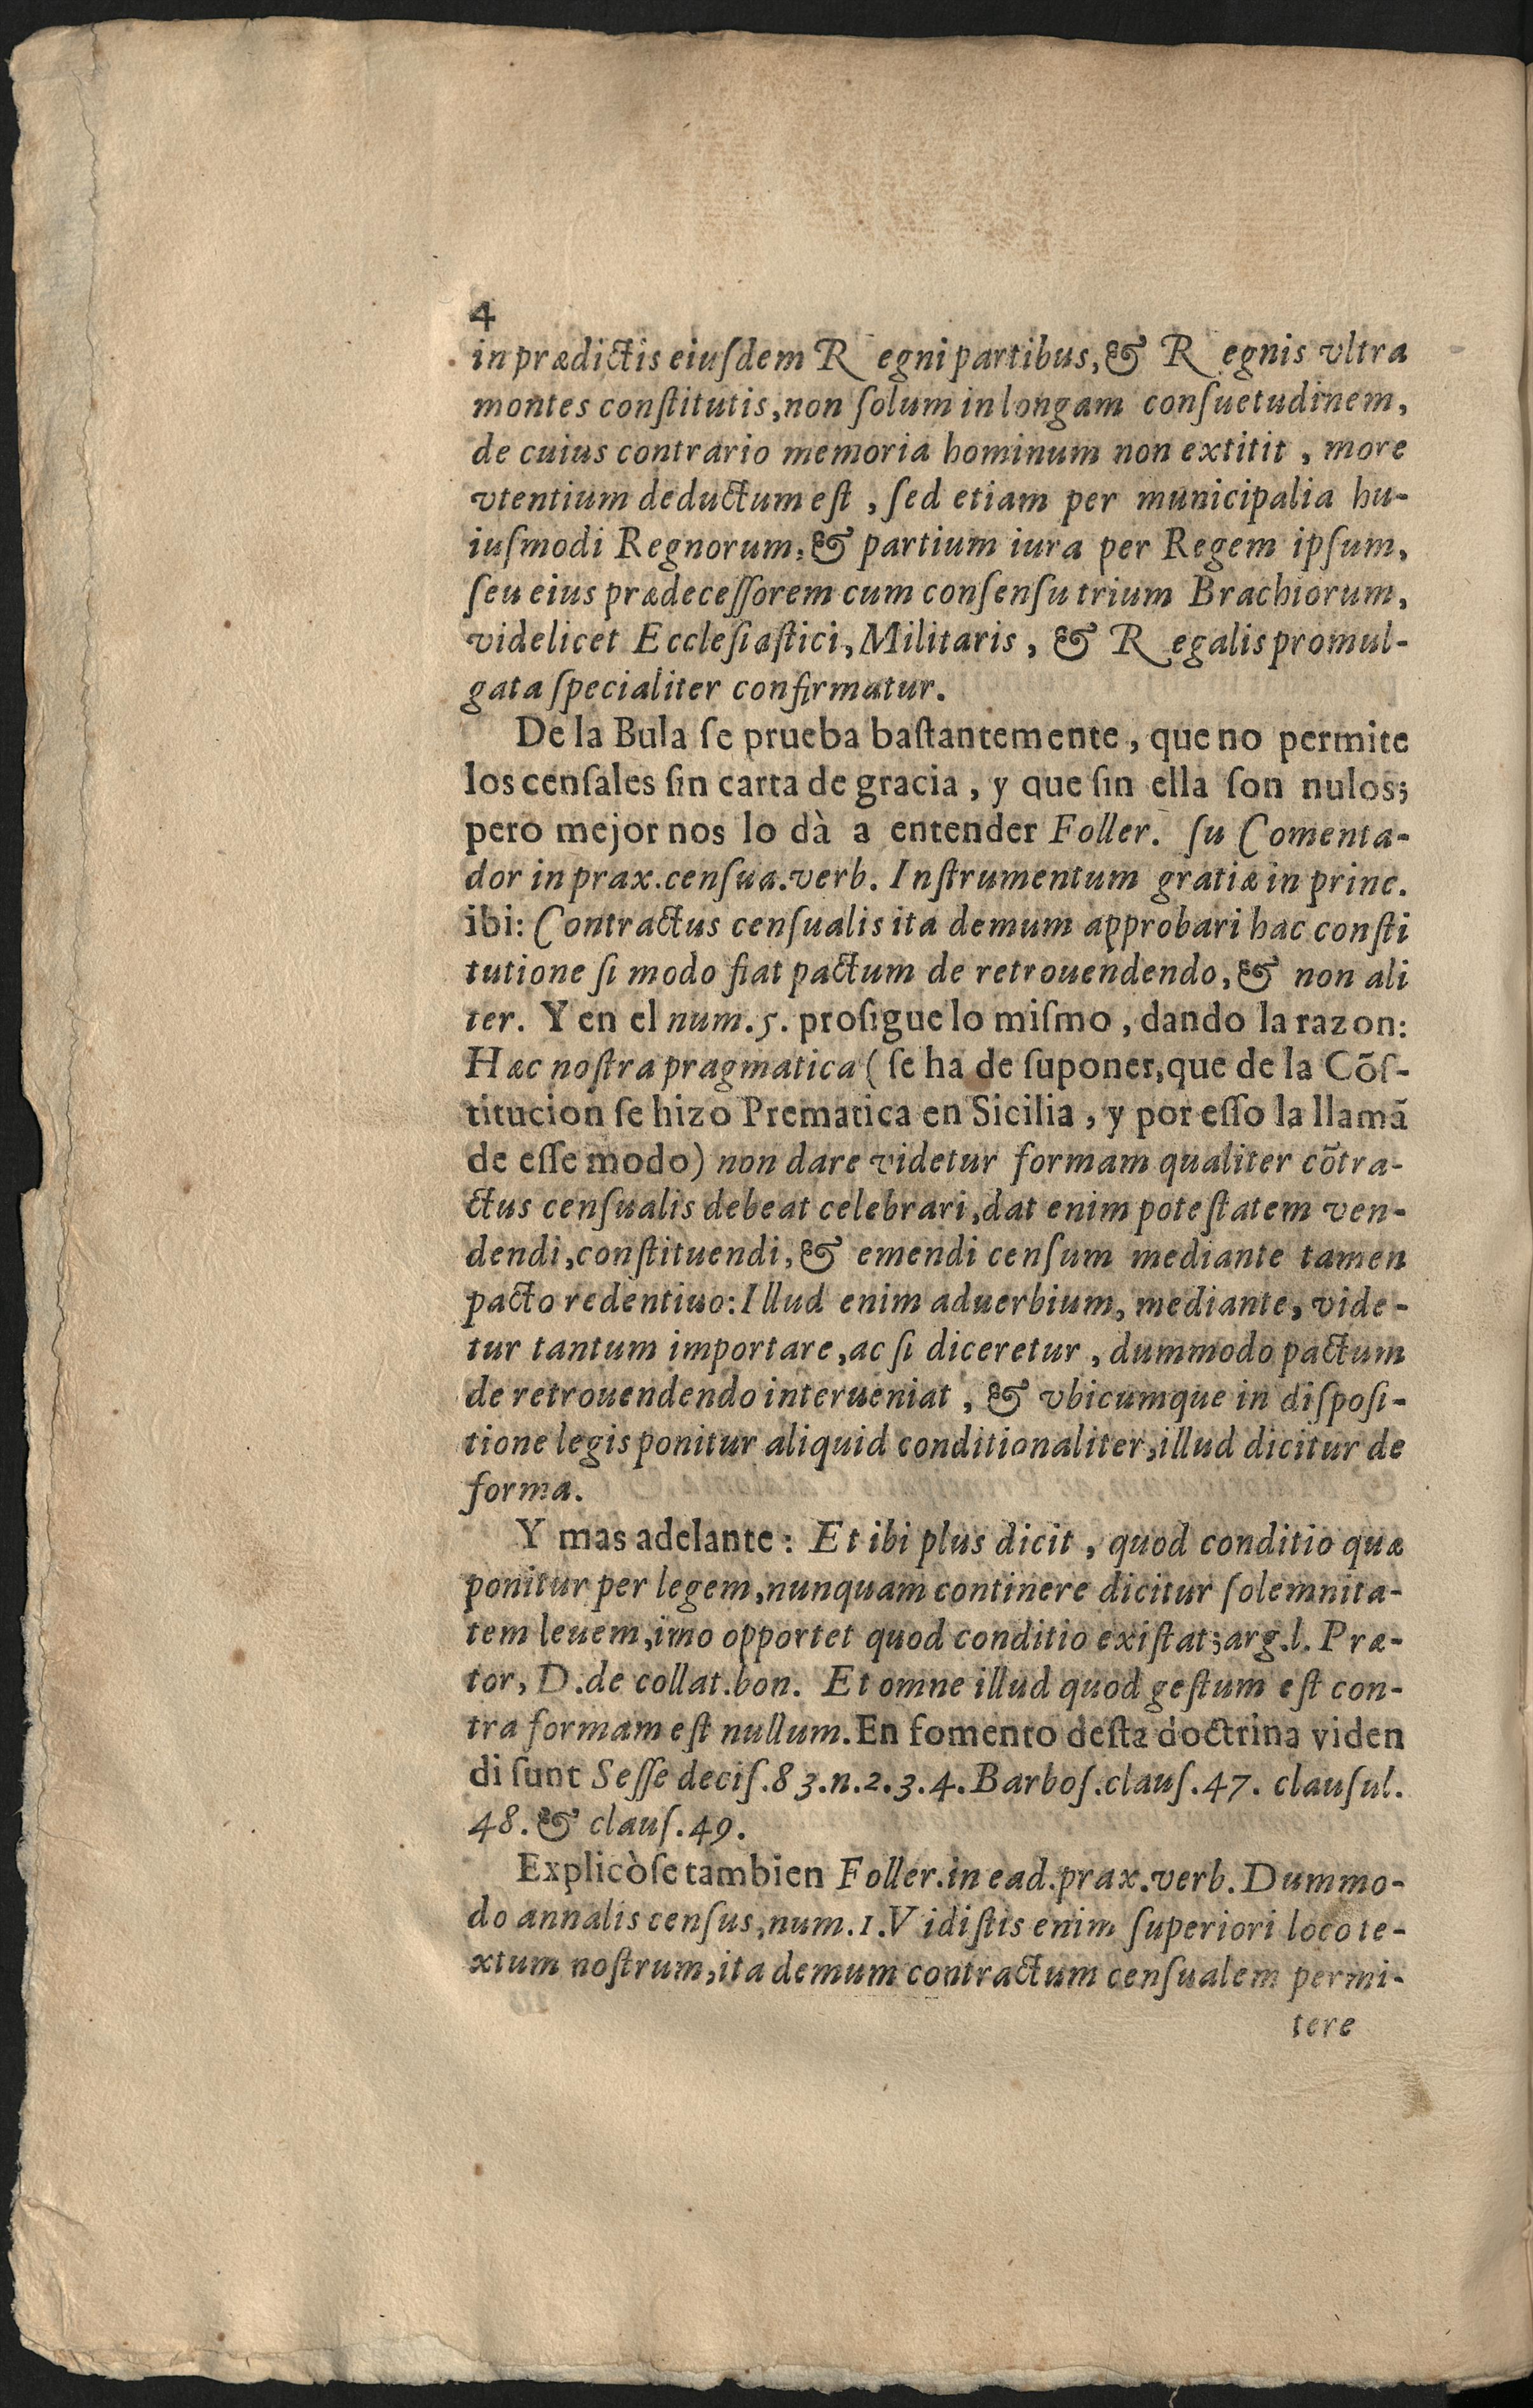 4
in prædictis eiuſdem Regni partibus, & Regnis vltra
montes conſtitutis, non ſolum in longam conſuetudinem,
de cuius contrario memoria hominum non extitit, more
vtentium deductum eſt, ſed etiam per municipalia hu-
iuſmodi Regnorum, & partium iura per Regem ipſum,
ſeu eius prædeceſſorem cum conſenſu trium Brachiorum,
videlicet Eccleſiaſtici, Militaris, & Regalis promul-
gata ſpecialiter confirmatur.
De la Bula ſe prueba baſtantemente, que no permite
los cenſales ſin carta de gracia, y que ſin ella ſon nulos;
pero mejor nos lo dà a entender Foller. ſu Comenta-
dor in prax.cenſua.verb. Inſtrumentum gratiæ in princ.
ibi: Contractus cenſualis ita demum approbari hac conſti
tutione ſi modo fiat pactum de retrouendendo, & non ali
ter. Y en el num.5. proſigue lo miſmo, dando la razon:
Hæc noſtra pragmatica (ſe ha de ſuponer, que de la Cõſ-
titucion ſe hizo Prematica en Sicilia, y por eſſo la llamã
de eſſe modo) non dare videtur formam qualiter cõtra-
ctus cenſualis debeat celebrari, dat enim poteſtatem ven-
dendi, conſtituendi, & emendi cenſum mediante tamen
pacto redentiuo: Illud enim aduerbium, mediante, vide-
tur tantum importare, ac ſi diceretur, dummodo pactum
de retrouendendo interueniat, & vbicumque in diſpoſi-
tione legis ponitur aliquid conditionaliter, illud dicitur de
forma.
Y mas adelante: Et ibi plus dicit, quod conditio quæ
ponitur per legem, nunquam continere dicitur ſolemnita-
tem leuem, imo opportet quod conditio exiſtat; arg.l. Præ-
tor, D.de collat.bon. Et omne illud quod geſtum eſt con-
tra formam eſt nullum. En fomento deſta doctrina viden
di ſunt Seſſe deciſ.83.n.2.3.4. Barboſ.clauſ.47. clauſul.
48. & clauſ.49.
Explicòſe tambien Foller.in ead.prax.verb. Dummo-
do annalis cenſus, num.1. Vidiſtis enim ſuperiori loco te-
xtum noſtrum, ita demum contractum cenſualem permi-
tere